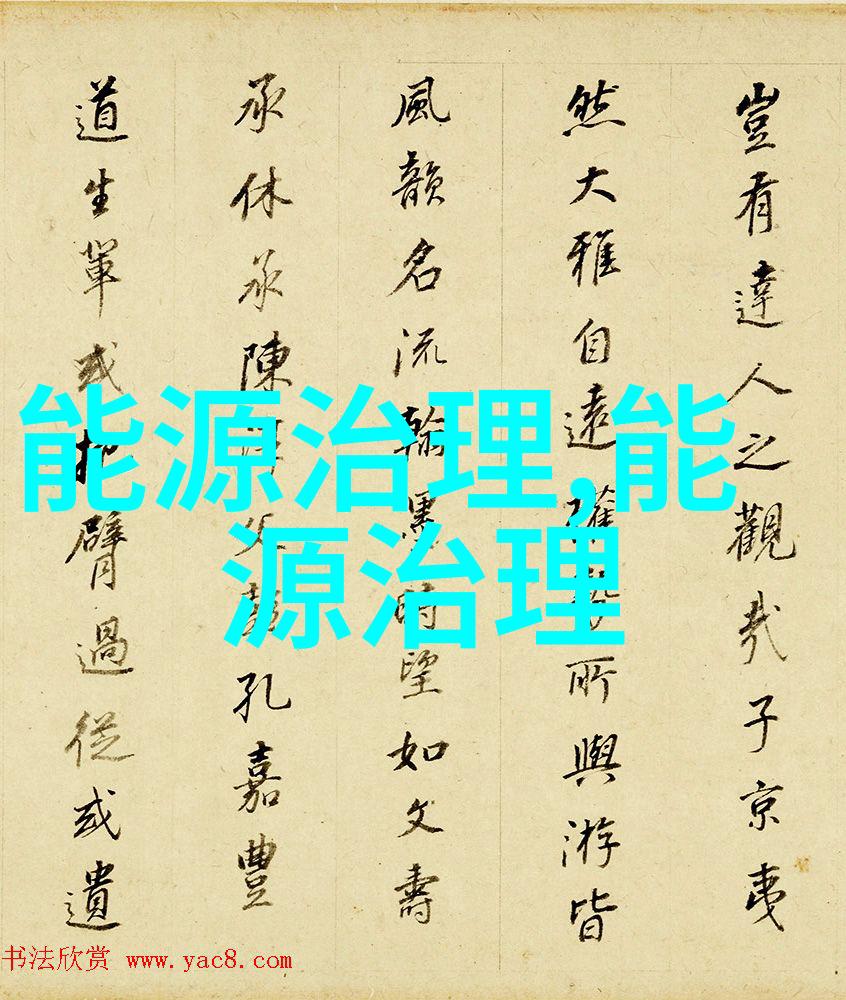 豈有達人之觀哉子京夷
然大雅自遠所與游皆
風韻名流翰墨時望如文壽
承休承陳淳父彭孔嘉豐
道生輩或把臂過從或遺
能源治理,能
源治理
书法欣赏 www.yac8.com